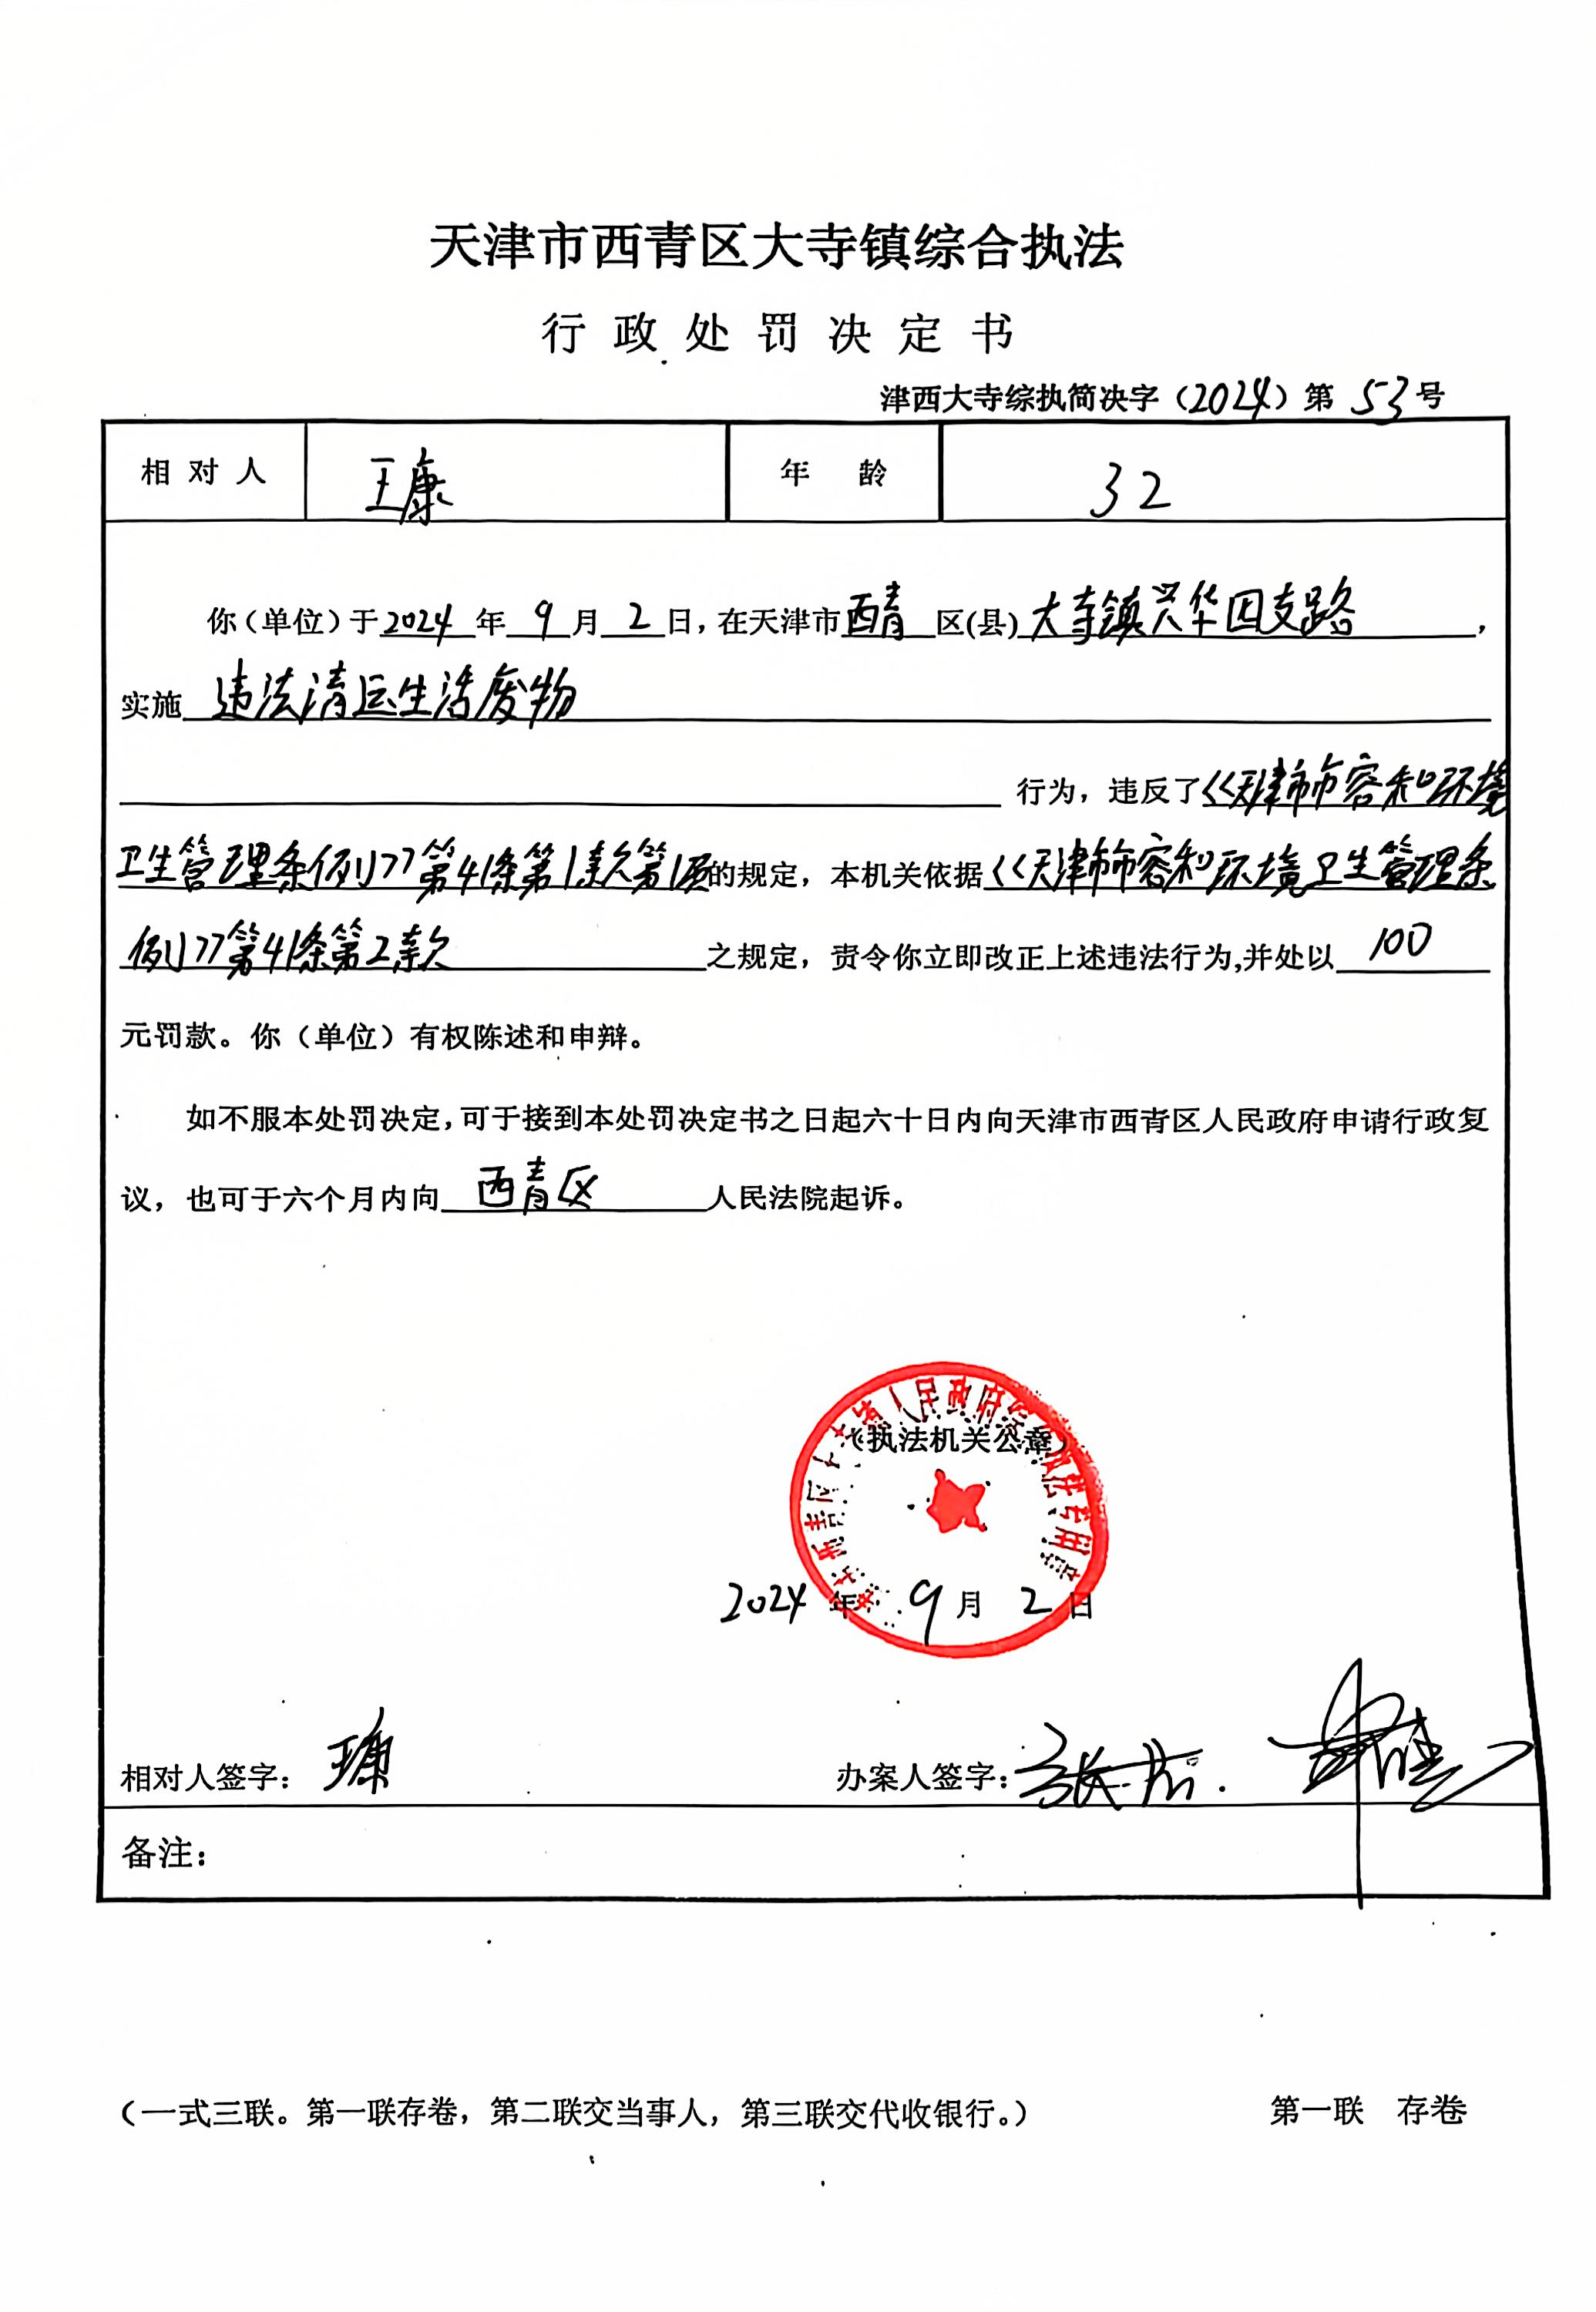 天津市西青区大寺镇综合执法
行政处罚决定书
津西大寺综执简决字（2024）第 53 号
相对人 王康 年龄 32
你（单位）于2024年9月2日，在天津市西青区(县)大寺镇兴华四支路，
实施违法清运生活废物
行为，违反了<<天津市市容和环境
卫生管理条例>>第41条第1款第1项的规定，本机关依据<<天津市市容和环境卫生管理条
例>>第41条第2款之规定，责令你立即改正上述违法行为,并处以100
元罚款。你（单位）有权陈述和申辩。
如不服本处罚决定，可于接到本处罚决定书之日起六十日内向天津市西青区人民政府申请行政复
议，也可于六个月内向西青区人民法院起诉。
（执法机关公章）
2024年9月2日
相对人签字：王康 办案人签字：
备注：
（一式三联。第一联存卷，第二联交当事人，第三联交代收银行。） 第一联 存卷